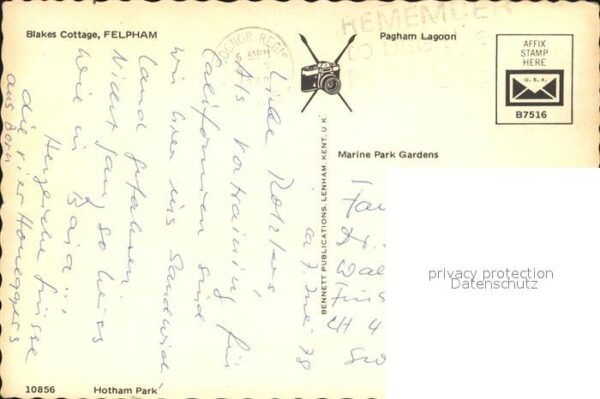 Blakes Cottage, FELPHAM
Pagham Lagoon
BOGNOR REGIS
REMEMBER
AFFIX
STAMP
HERE
U.S.A.
B7516
Marine Park Gardens
BENNETT PUBLICATIONS, LENHAM, KENT, U.K.
a 7. Juli 78
Liebe
Als vortraining für
Californien sind
wir hier ins Sandwich
land gefahren
Nicht ganz so heiss
wie in
Herzliche Grüsse
die vier Honeggers
aus Bern
Fa
Dr.
Wal
CH 4
privacy protection
Datenschutz
10856
Hotham Park